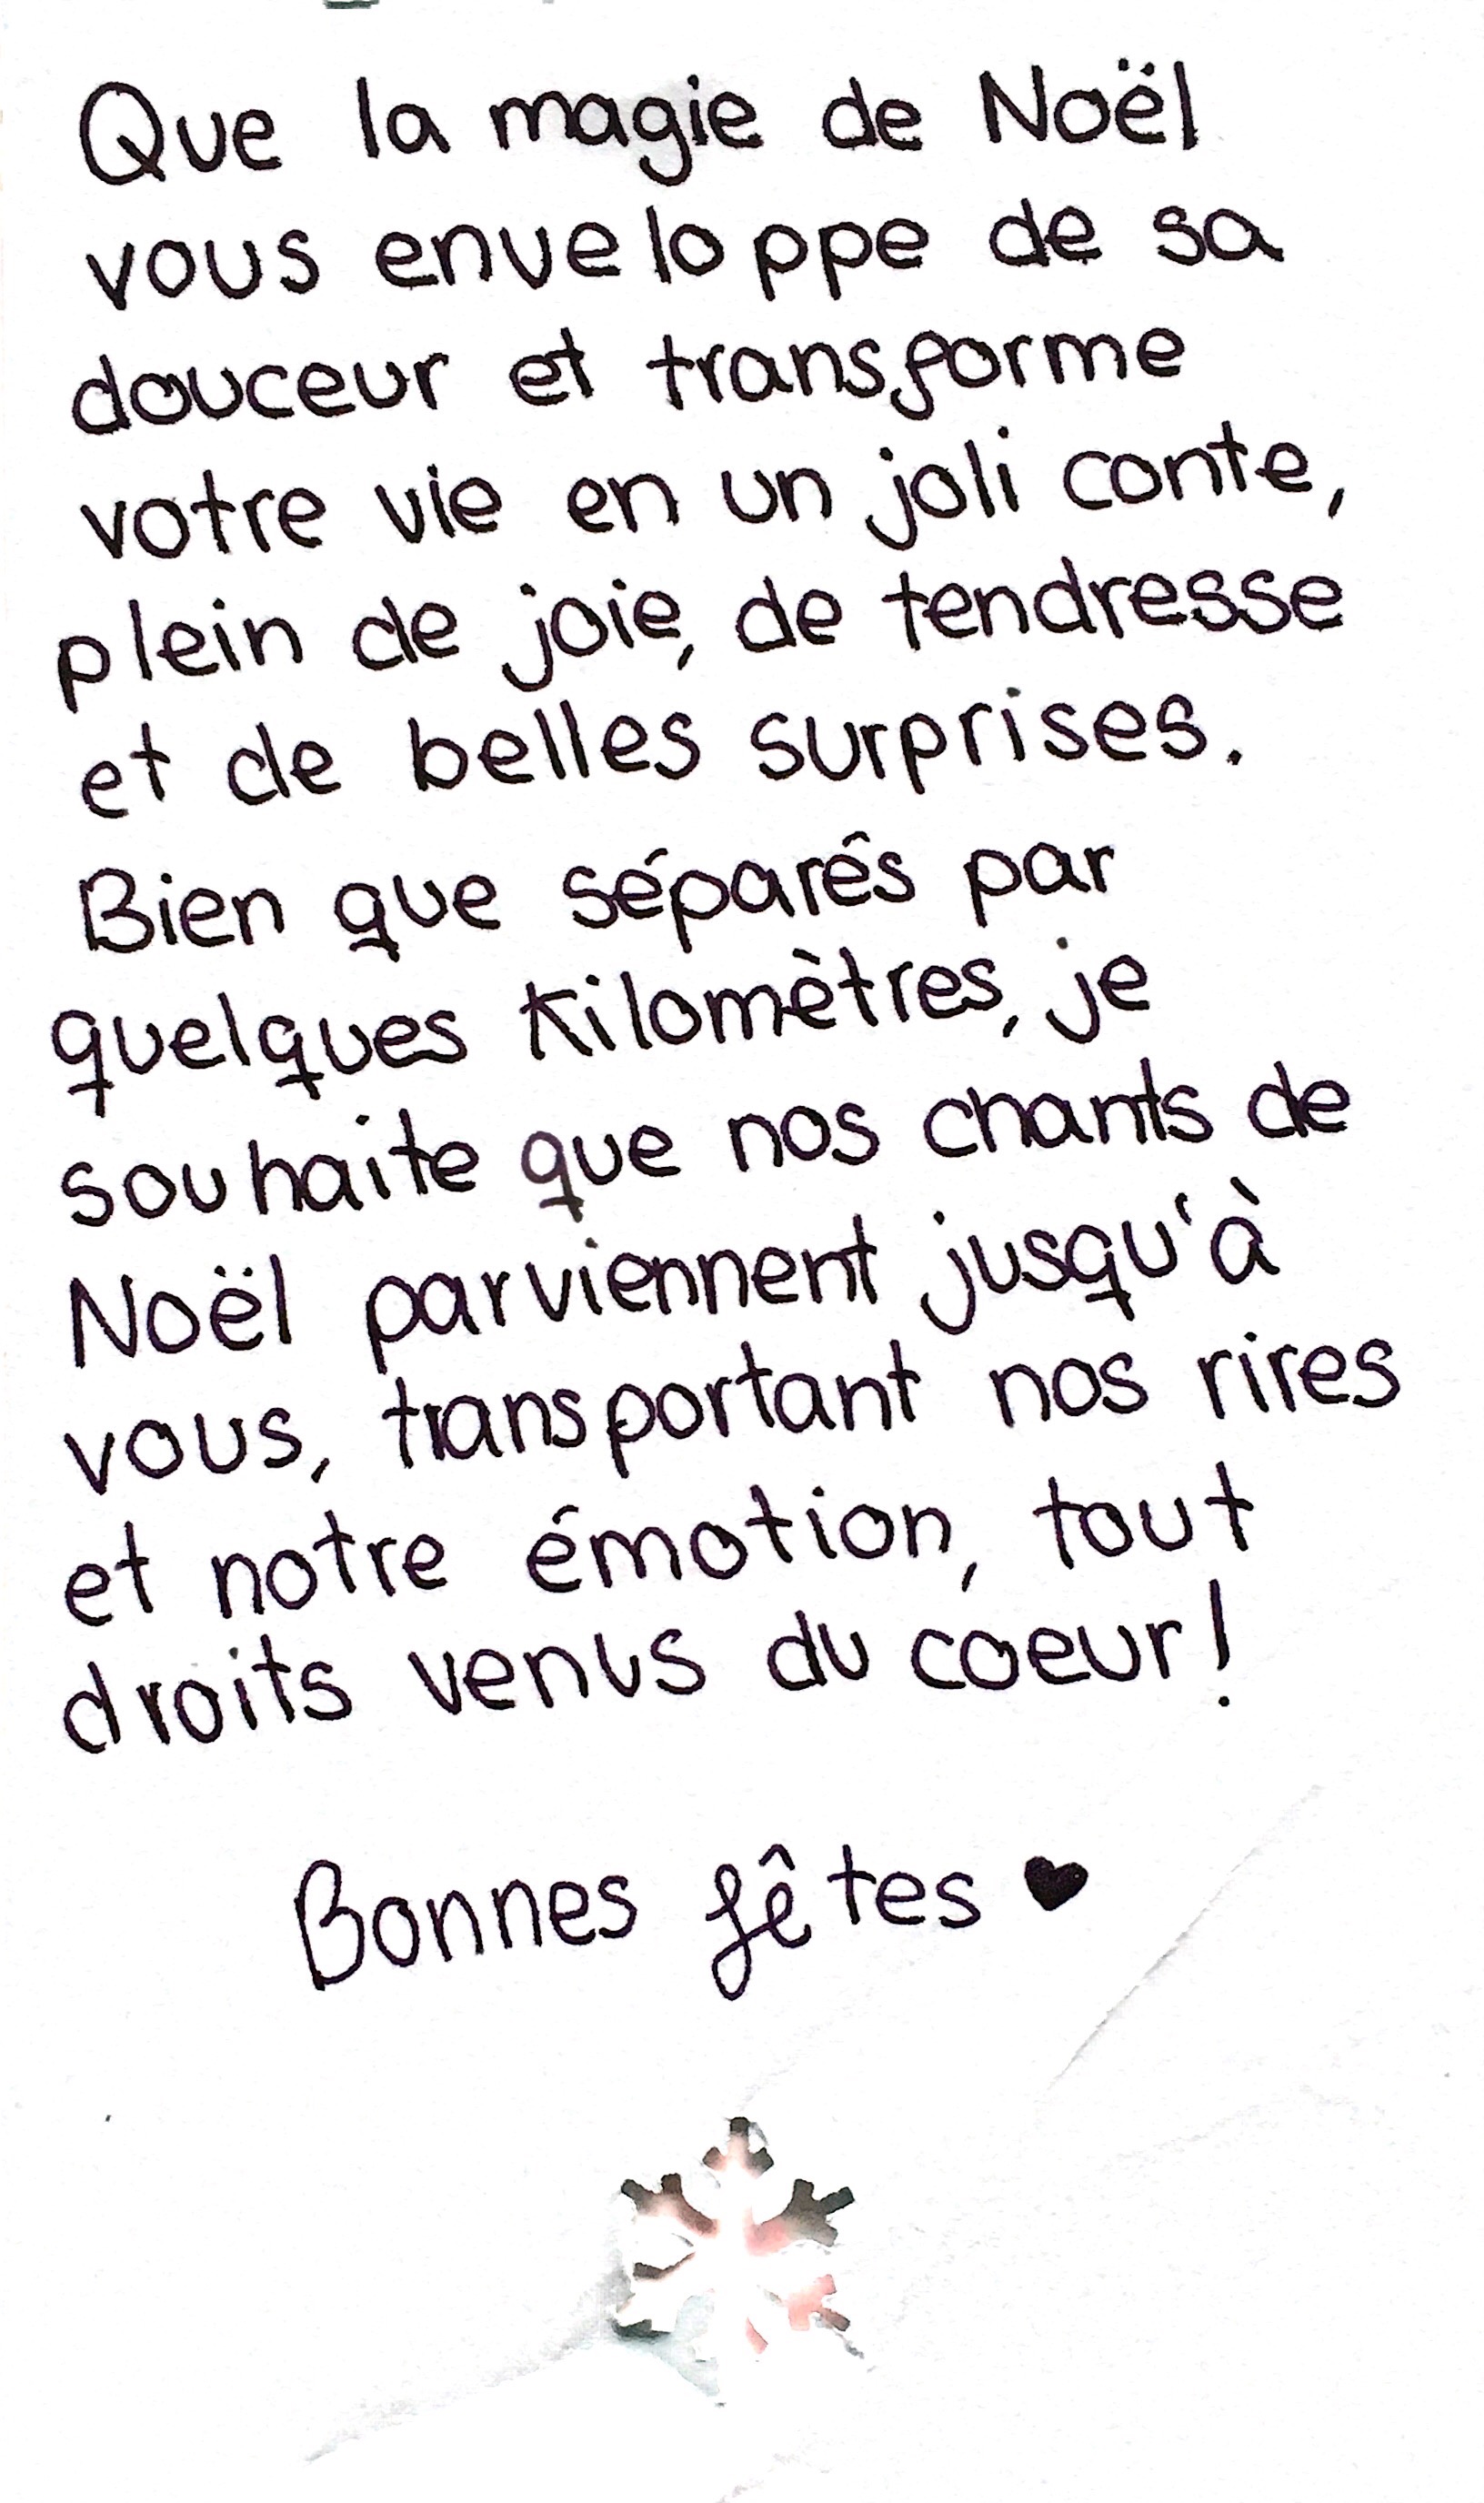 Que la magie de Noël
vous enveloppe de sa
douceur et transforme
votre vie en un joli conte,
plein de joie, de tendresse
et de belles surprises.
Bien que séparés par
quelques kilomètres, je
souhaite que nos chants de
Noël parviennent jusqu'à
vous, transportant nos rires
et notre émotion, tout
droits venus du coeur!
Bonnes fêtes ♥